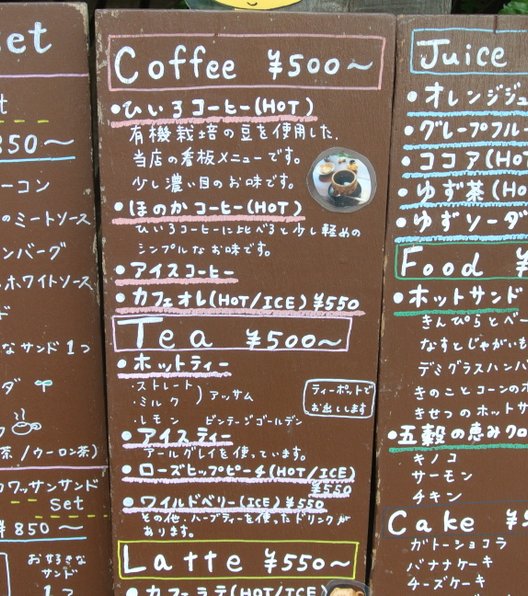 et
t
850〜
ーコン
のミートソース
ンバーグ
ホワイトソース
ド
なサンド 1つ
ダ
茶 /ウーロン茶)
ワッサンサンド
Set
850〜
お好きな
サンド
1つ
Coffee ¥500〜
・ひいろコーヒー(HOT)
有機栽培の豆を使用した、
当店の看板メニューです。
少し濃い目のお味です。
・ほのかコーヒー(HOT)
ひいろコーヒーに比べると少し軽めの
シンプルなお味です。
・アイスコーヒー
・カフェオレ(HOT/ICE) ¥550
Tea ¥500〜
・ホットティー
・ストレート
・ミルク ) アッサム
・レモン ビンテージゴールデン
ティーポットで
お出しします
・アイスティー
アールグレイを使っています。
・ローズヒップピーチ(HOT/ICE)
¥550
・ワイルドベリー(ICE) ¥550
その他・ハーブティーを使ったドリンクが
あります。
Latte ¥550〜
・カフェラテ(HOT/ICE)
Juice
・オレンジジュ
・グレープフル
・ココア(HO
・ゆず茶(HO
・ゆずソーダ
Food ¥
・ホットサンド
きんぴらとベー
なすとじゃがいも
デミグラスハンバ
きのことコーンの
きせつのホットサ
・五穀の恵みクロ
キノコ
サーモン
チキン
Cake ¥
ガトーショコラ
バナナケーキ
チーズケーキ